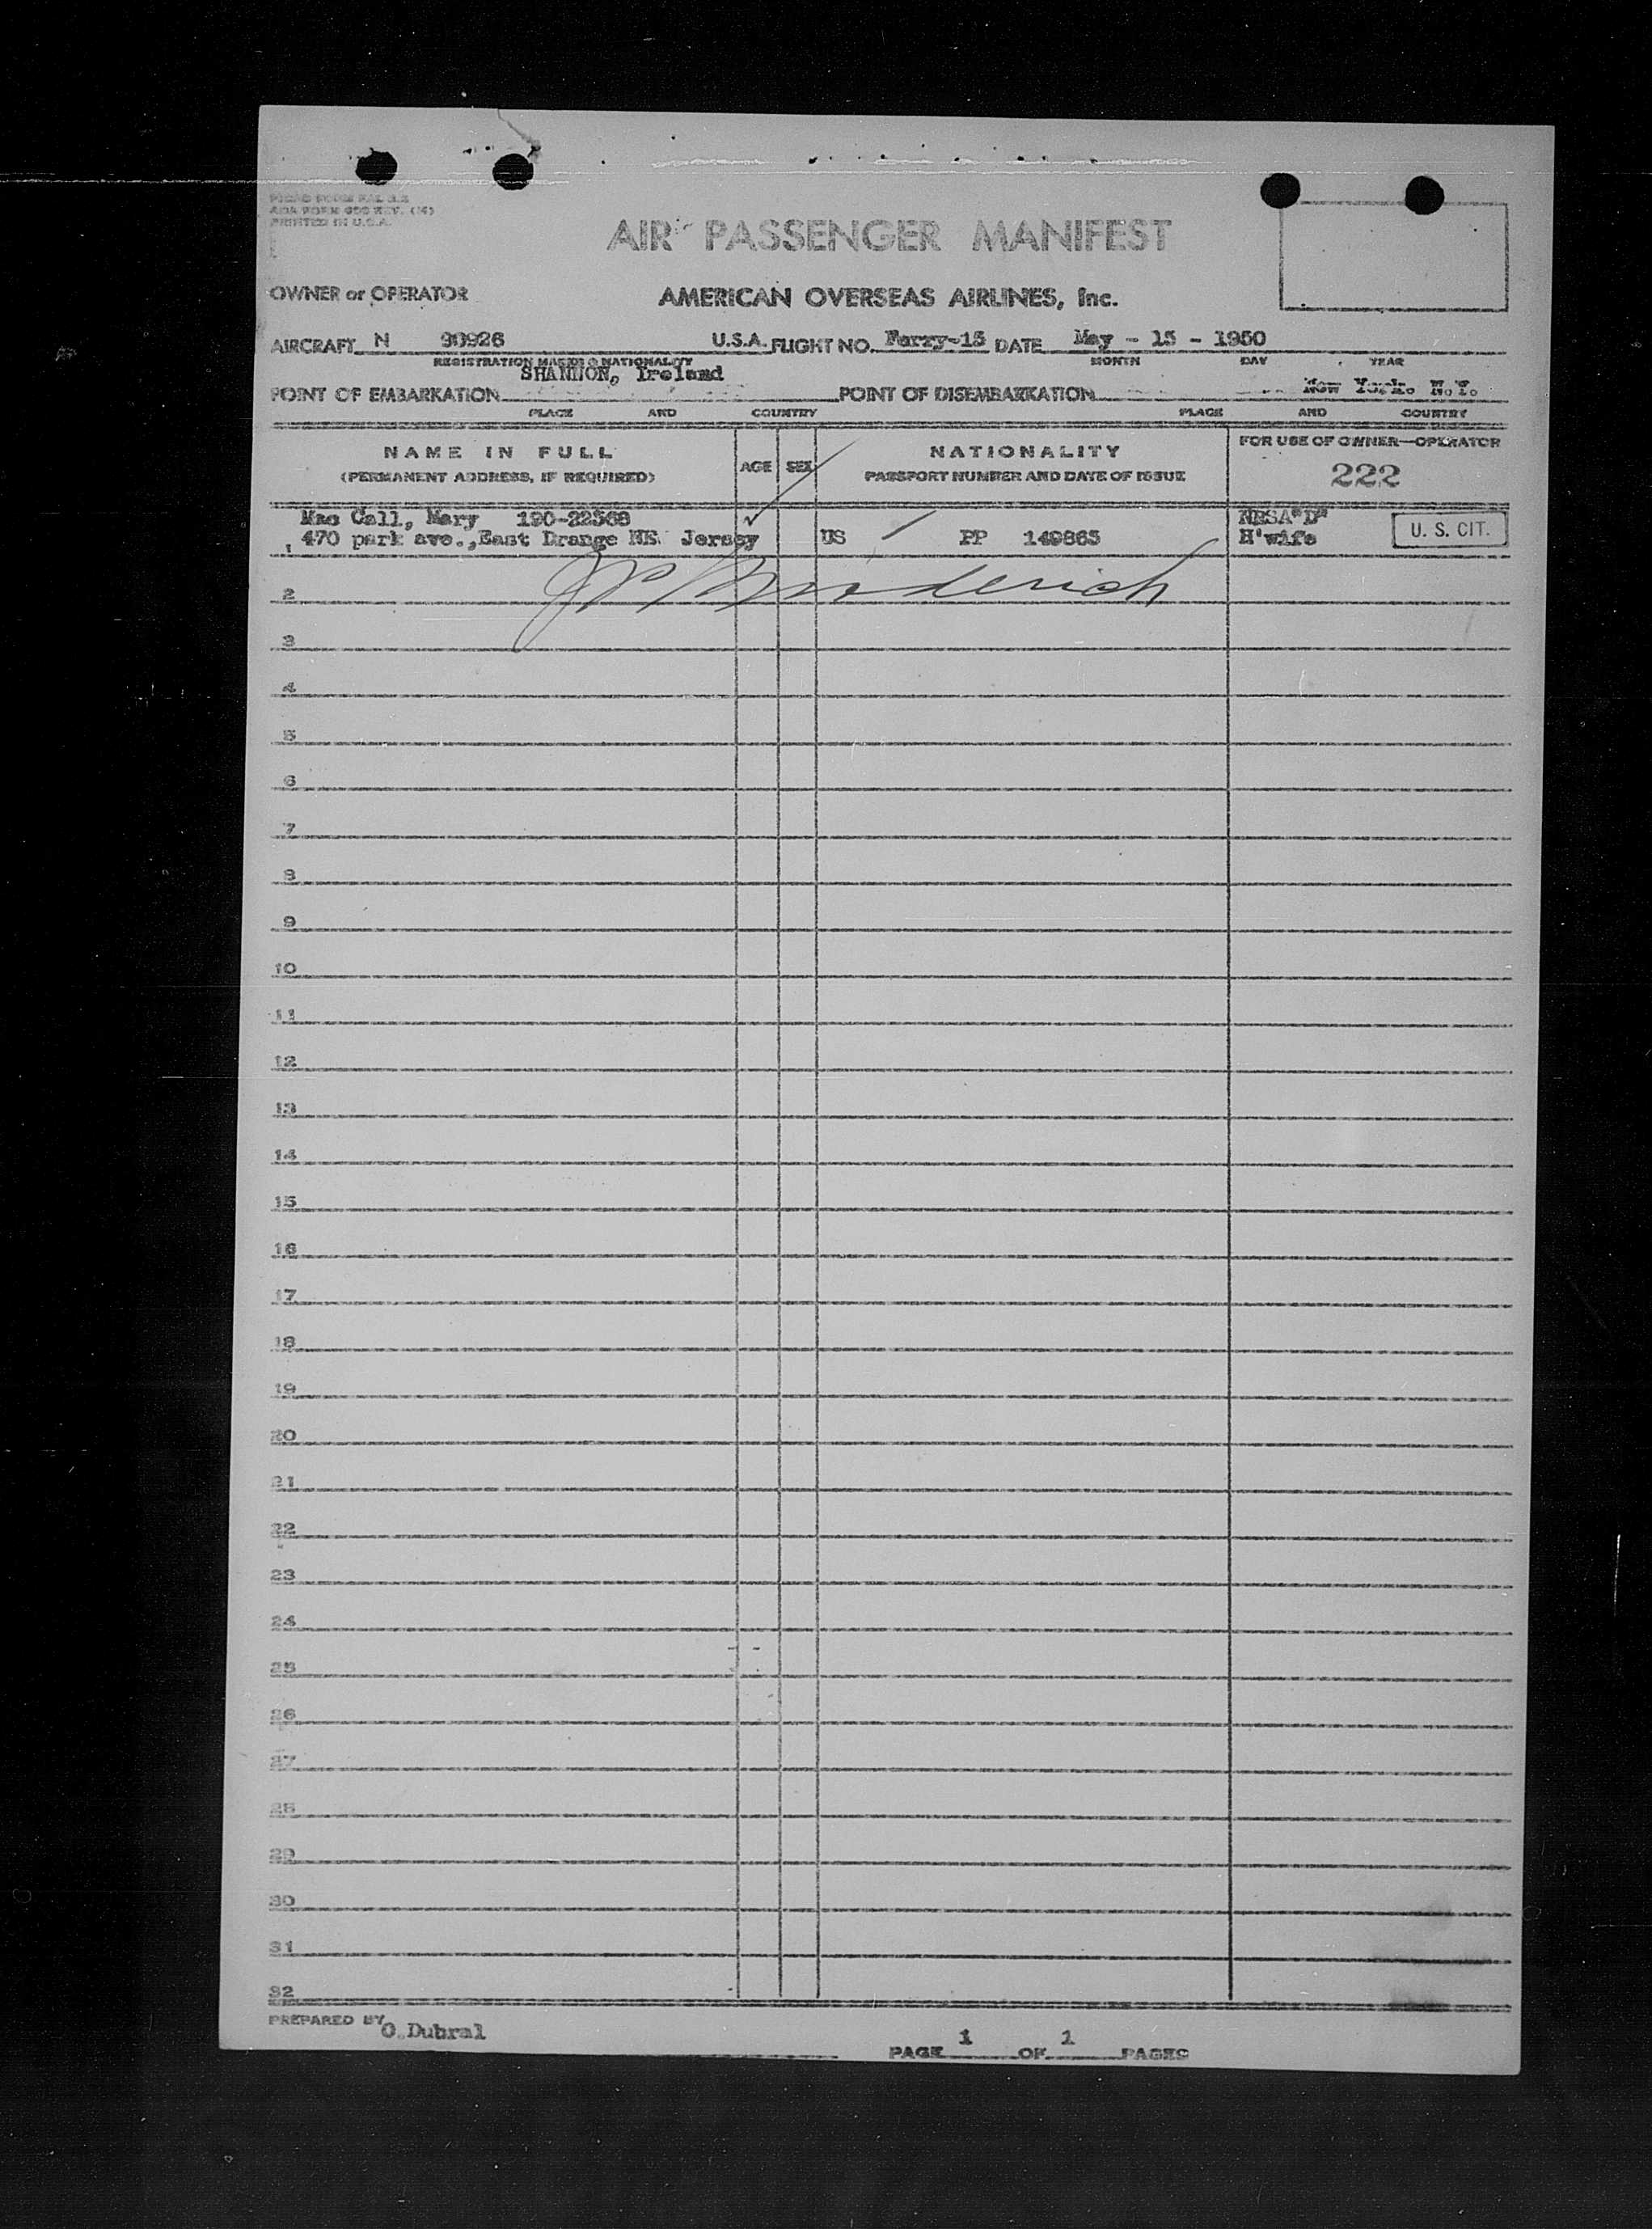 PICAO FORM FAL 3.2
AOA FORM 600 REV. (16)
PRINTED IN U.S.A.
AIR PASSENGER MANIFEST
OWNER or OPERATOR AMERICAN OVERSEAS AIRLINES, Inc.
AIRCRAFT N 90926 U.S.A. FLIGHT NO. Ferry-15 DATE May - 15 - 1950
REGISTRATION MARKS & NATIONALITY MONTH DAY YEAR
SHANNON, Ireland
POINT OF EMBARKATION POINT OF DISEMBARKATION New York. N.Y.
PLACE AND COUNTRY PLACE AND COUNTRY
NAME IN FULL AGE SEX NATIONALITY FOR USE OF OWNER—OPERATOR
(PERMANENT ADDRESS, IF REQUIRED) PASSPORT NUMBER AND DATE OF ISSUE 222
Mac Call, Mary 190-22568 NRSA"D"
1 470 park ave.,East Drange NE. Jersey US PP 149865 H'wife U. S. CIT.
2
3
4
5
6
7
8
9
10
11
12
13
14
15
16
17
18
19
20
21
22
23
24
25
26
27
28
29
30
31
32
PREPARED BY O.Dubral
PAGE 1 OF 1 PAGES